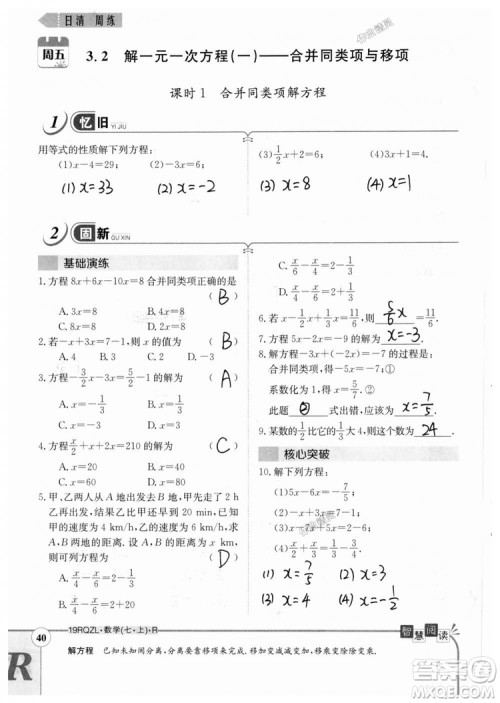 日清 周练
周五
3.2 解一元一次方程(一)——合并同类项与移项
课时1 合并同类项解方程
1 忆旧
YI JIU
用等式的性质解下列方程:
(1)x-4=29; (2)-3x=6; (3)1/2x+2=6; (4)-3x+7=4.
(1) x=33 (2) x=-2 (3) x=8 (4) x=1
2 固新
GU XIN
基础演练
1. 方程8x+6x-10x=8合并同类项正确的是
(B)
A. 3x=8 B. 4x=8
C. 8x=8 D. 2x=8
2. 若-x+3x=7-1,则x的值为 (B)
A. 4 B. 3 C. 2 D. -1
A. x=-4/3 B. x=4/3
C. x=4 D. x=-4
(A)
(C)
A. x=40 B. x=60
C. x=80 D. x=20
5. 甲、乙两人从A地出发到B地,甲先走了2h
乙再出发,结果乙比甲早到20 min,已知甲
的速度为4 km/h,乙的速度为6 km/h,求A、
B两地的距离.若设两地距离为x km,则可列
方程为 (D)
A. x/4-x/6=2-1/3 B. x/4-x/6=2+20
C. x/6-x/4=2-1/3
D. x/4-x/6=2+1/3
6. 若x-1/2x+1/3x=6,则 5/6 x =6.
7. 方程5x-2x=-9的解为 x=-3.
8. 解方程-x-3x+(-2x)=-7的过程如下:
合并同类项,得-6x=-7;①
此题 ② 式出错,应该为 x=7/5.
9. 某数的1/2比它的1/3大4,则某数为 24.
核心突破
10. 解下列方程:
(1)5x-6x=-7/5;
(1) x=7/5 (2) x=1
40
19RQZL·数学(七·上)·R
解方程 已知未知闹分离,分离要靠移项完成.移加变减减变加,移乘变除除变乘.
智慧阅读